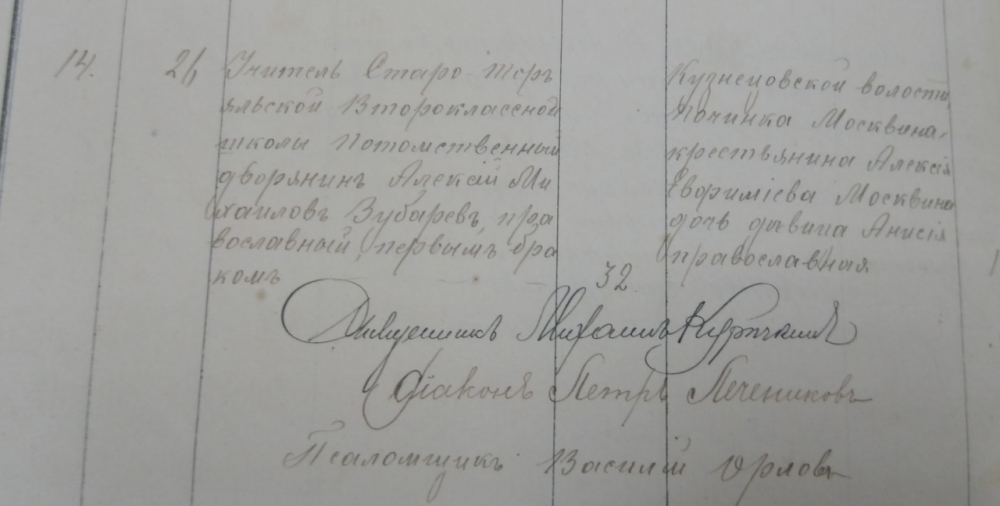 14.
21
Учитель Старо Торъ
яльской Второклассной
школы Потомственный
дворянинъ Алексій Ми
хаиловъ Зубаревъ, пра
вославный, первымъ бра
комъ
32
Кузнецовской волости
Починка Москвина,
крестьянина Алексія
Евфиміева Москвина
дочь дѣвица Анисія
православная
Священникъ Михаилъ
Діаконъ Петръ Печениковъ
Псаломщикъ Василій Орловъ